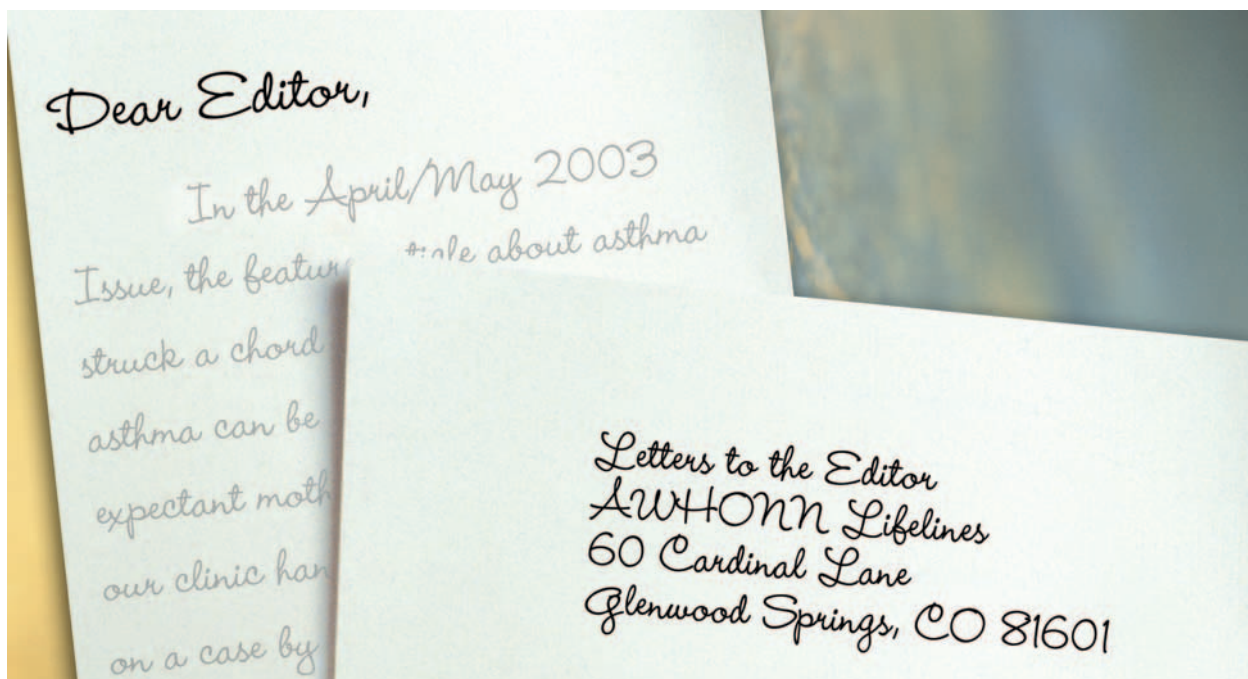 Dear Editor,
In the April/May 2003
Issue, the featur about asthma
struck a chord
asthma can be
expectant moth
our clinic han
on a case by
Letters to the Editor
AWHONN Lifelines
60 Cardinal Lane
Glenwood Springs, CO 81601